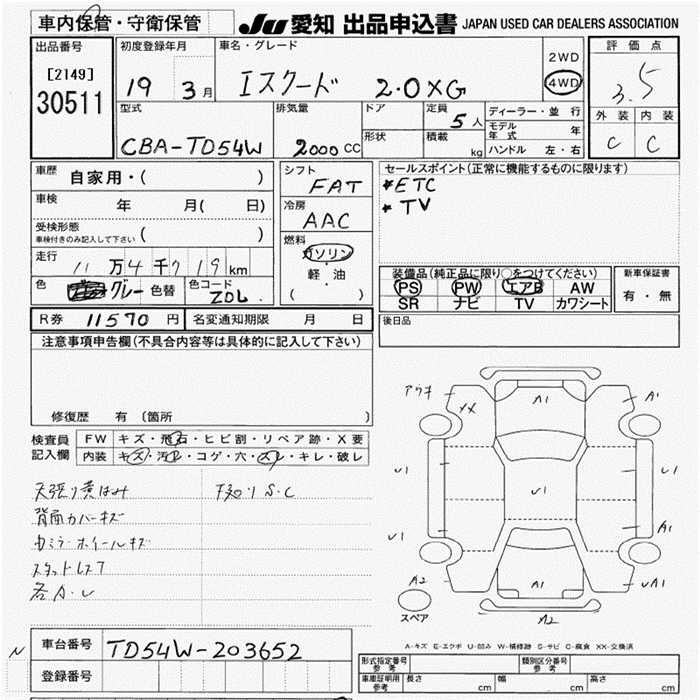 車内保管・守衛保管
JU 愛知 出品申込書 JAPAN USED CAR DEALERS ASSOCIATION
出品番号
[2149]
30511
初度登録年月
19 3月
車名・グレード
エスクード 2.0XG
2WD
4WD
評価点
3.5
外装 内装
C C
型式
CBA-TD54W
排気量
2000 CC
ドア
形状
定員
5人
積載
kg
ディーラー・並行
モデル年式 年
ハンドル 左・右
車歴 自家用・( )
車検 年 月( 日)
受検形態
車検付きのみ記入して下さい ( )
走行 11万4千719km
色 グレー 色替
色コード ZDL
シフト
FAT
冷房
AAC
燃料
ガソリン
軽・油
( )
セールスポイント(正常に機能するものに限ります)
*ETC
*TV
装備品(純正品に限り○をつけてください)
PS PW エアB AW
SR ナビ TV カワシート
新車保証書
有・無
後日品
R券 11570円 名変通知期限 月 日
注意事項申告欄(不具合内容等は具体的に記入して下さい)
修復歴 有 〔箇所 〕
検査員
記入欄
FW キズ・飛石・ヒビ割・リペア跡・X要
内装 キズ・汚れ・コゲ・穴・スレ・キレ・破レ
天張り黄ばみ 下廻りS・C
背面カバーキズ
カミラ・ホイールキズ
スタットレス7
各A・U
アウキ
XX
A1
A'
U1
U1
U1
A1
U1
A2
A1
UA1
A2
スペア
A-キズ E-エクボ U-凹み W-補修跡 S-サビ C-腐食 XX-交換済
N
車台番号 TD54W-203652
登録番号
形式指定番号
参考
類別区分番号
参考
車庫証明用
参考
長さ cm 幅 cm 高さ cm